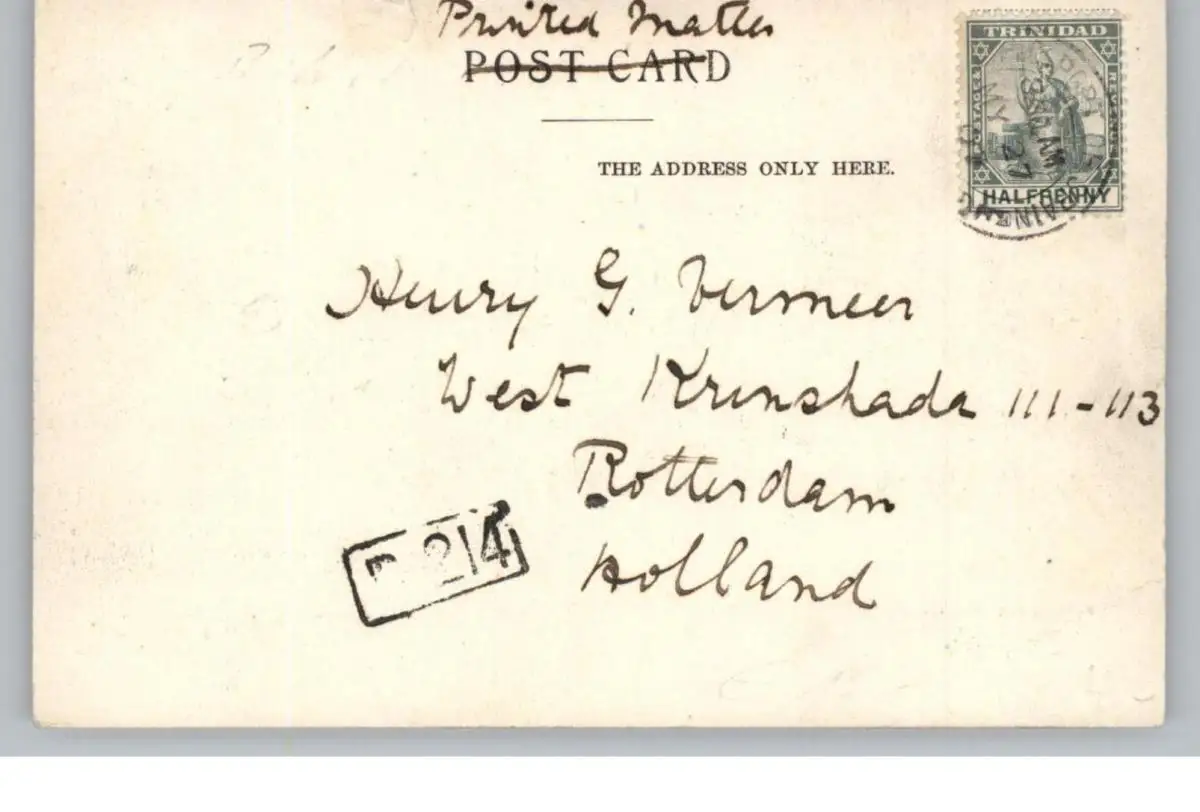 Printed Matter
POST CARD
THE ADDRESS ONLY HERE.
TRINIDAD
POSTAGE &
REVENUE
HALFPENNY
AM
MY 27
Henry G. Vermeer
West Krunshada 111-113
Rotterdam
Holland
214